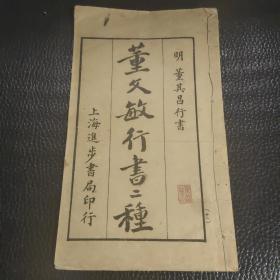 明 董其昌行書
董文敏行書二種
上海進步書局印行